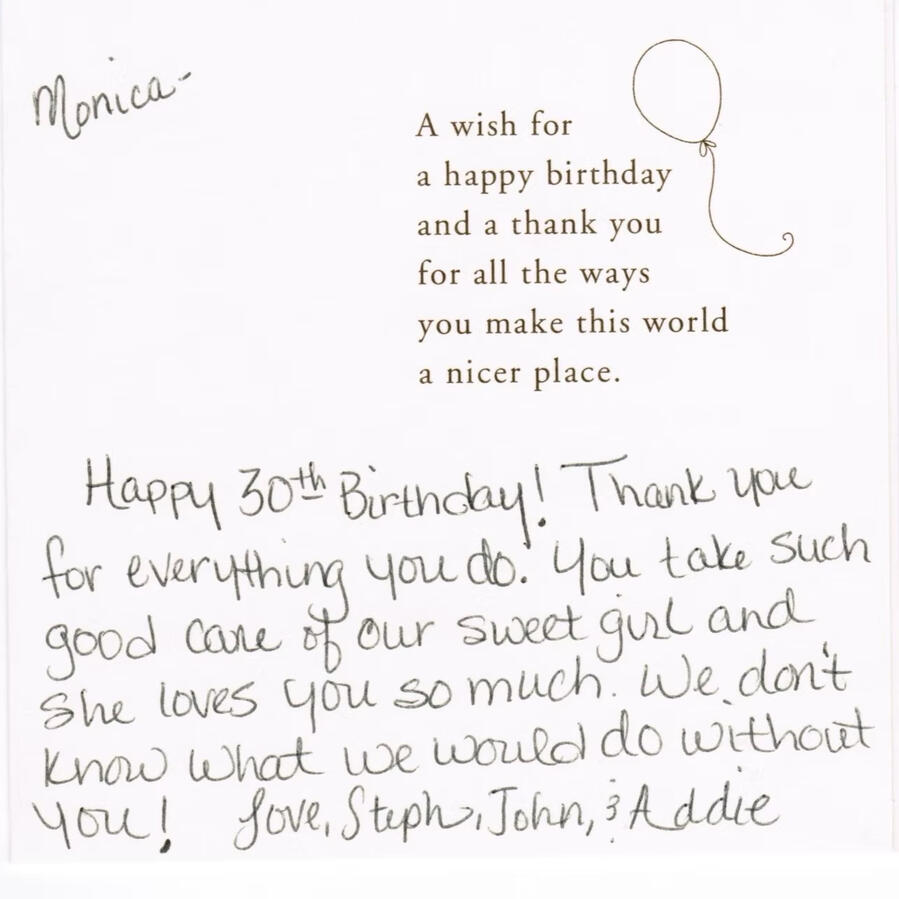 Monica-
A wish for
a happy birthday
and a thank you
for all the ways
you make this world
a nicer place.
Happy 30th Birthday! Thank you
for everything you do. You take such
good care of our sweet girl and
she loves you so much. We don't
know what we would do without
you! Love, Steph, John, & Addie